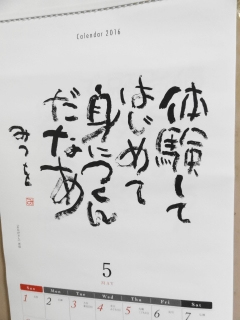 Calendar 2016
体験して
はじめて
身につくん
だなあ
みつを
5
MAY
Sun Mon Tue Wed Thu Fri Sat
1 2 3 4 5 6 7